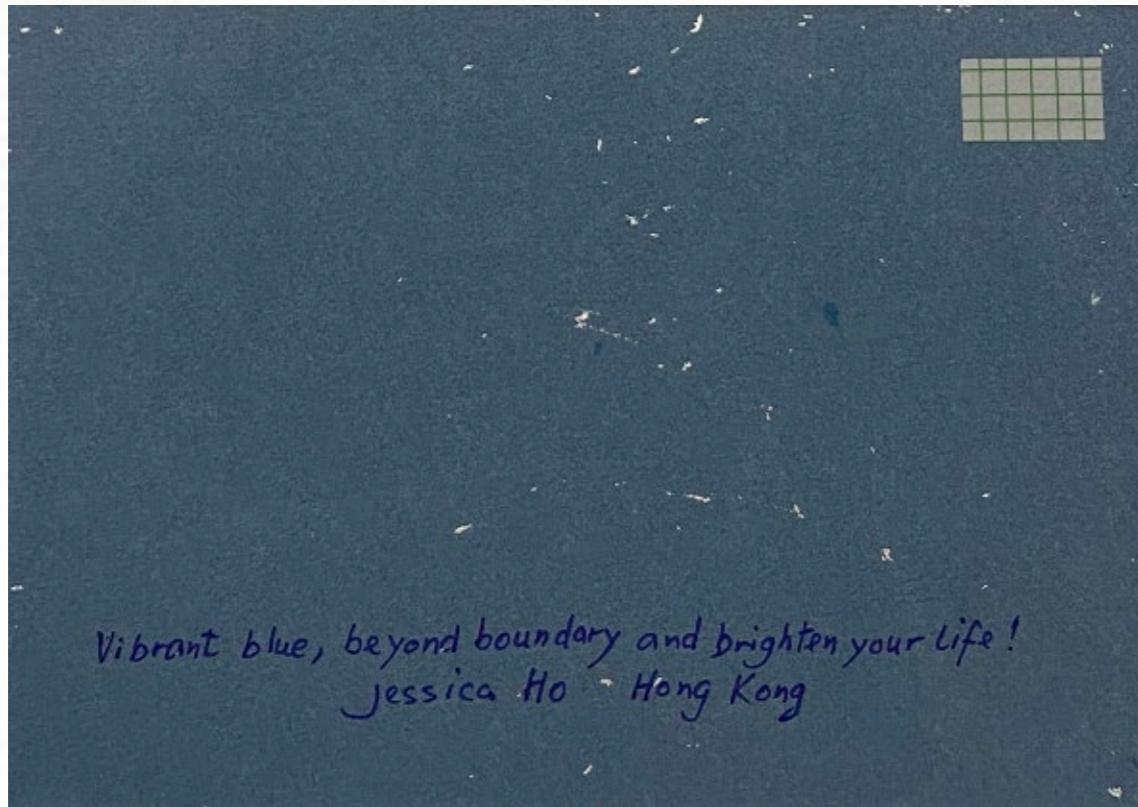 Vibrant blue, beyond boundary and brighten your life!
Jessica Ho - Hong Kong